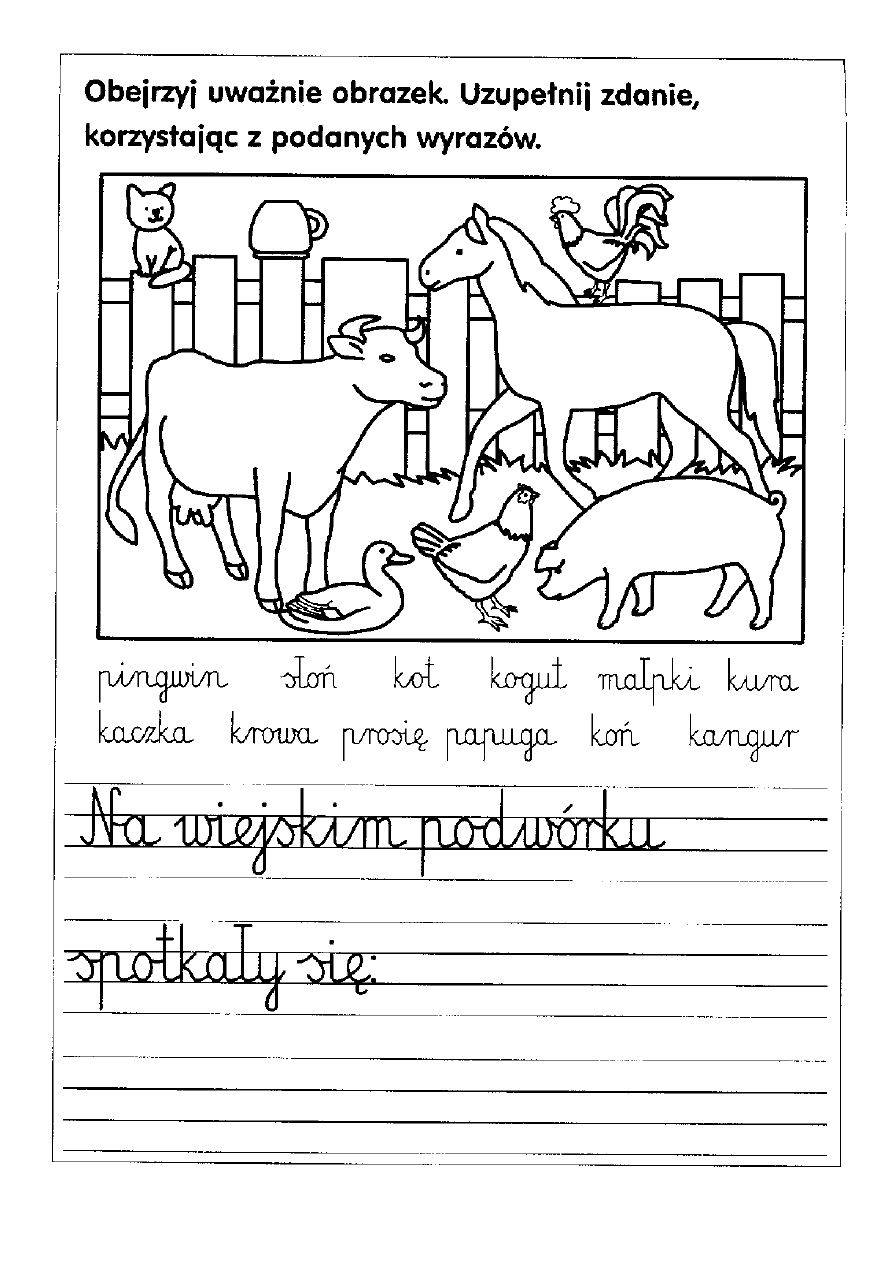 Obejrzyj uważnie obrazek. Uzupełnij zdanie,
korzystając z podanych wyrazów.
pingwin słoń kot kogut małpki kura
kaczka krowa prosię papuga koń kangur
Na wiejskim podwórku
spotkały się: